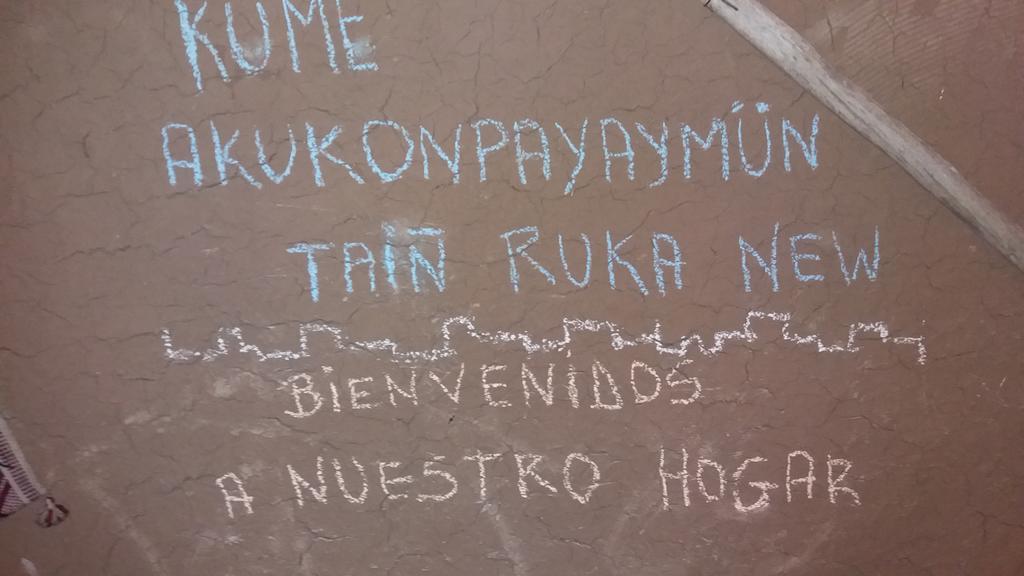 KUME
AKUKONPAYAYMÜN
TAIÑ RUKA NEW
BIENVENIDOS
A NUESTRO HOGAR